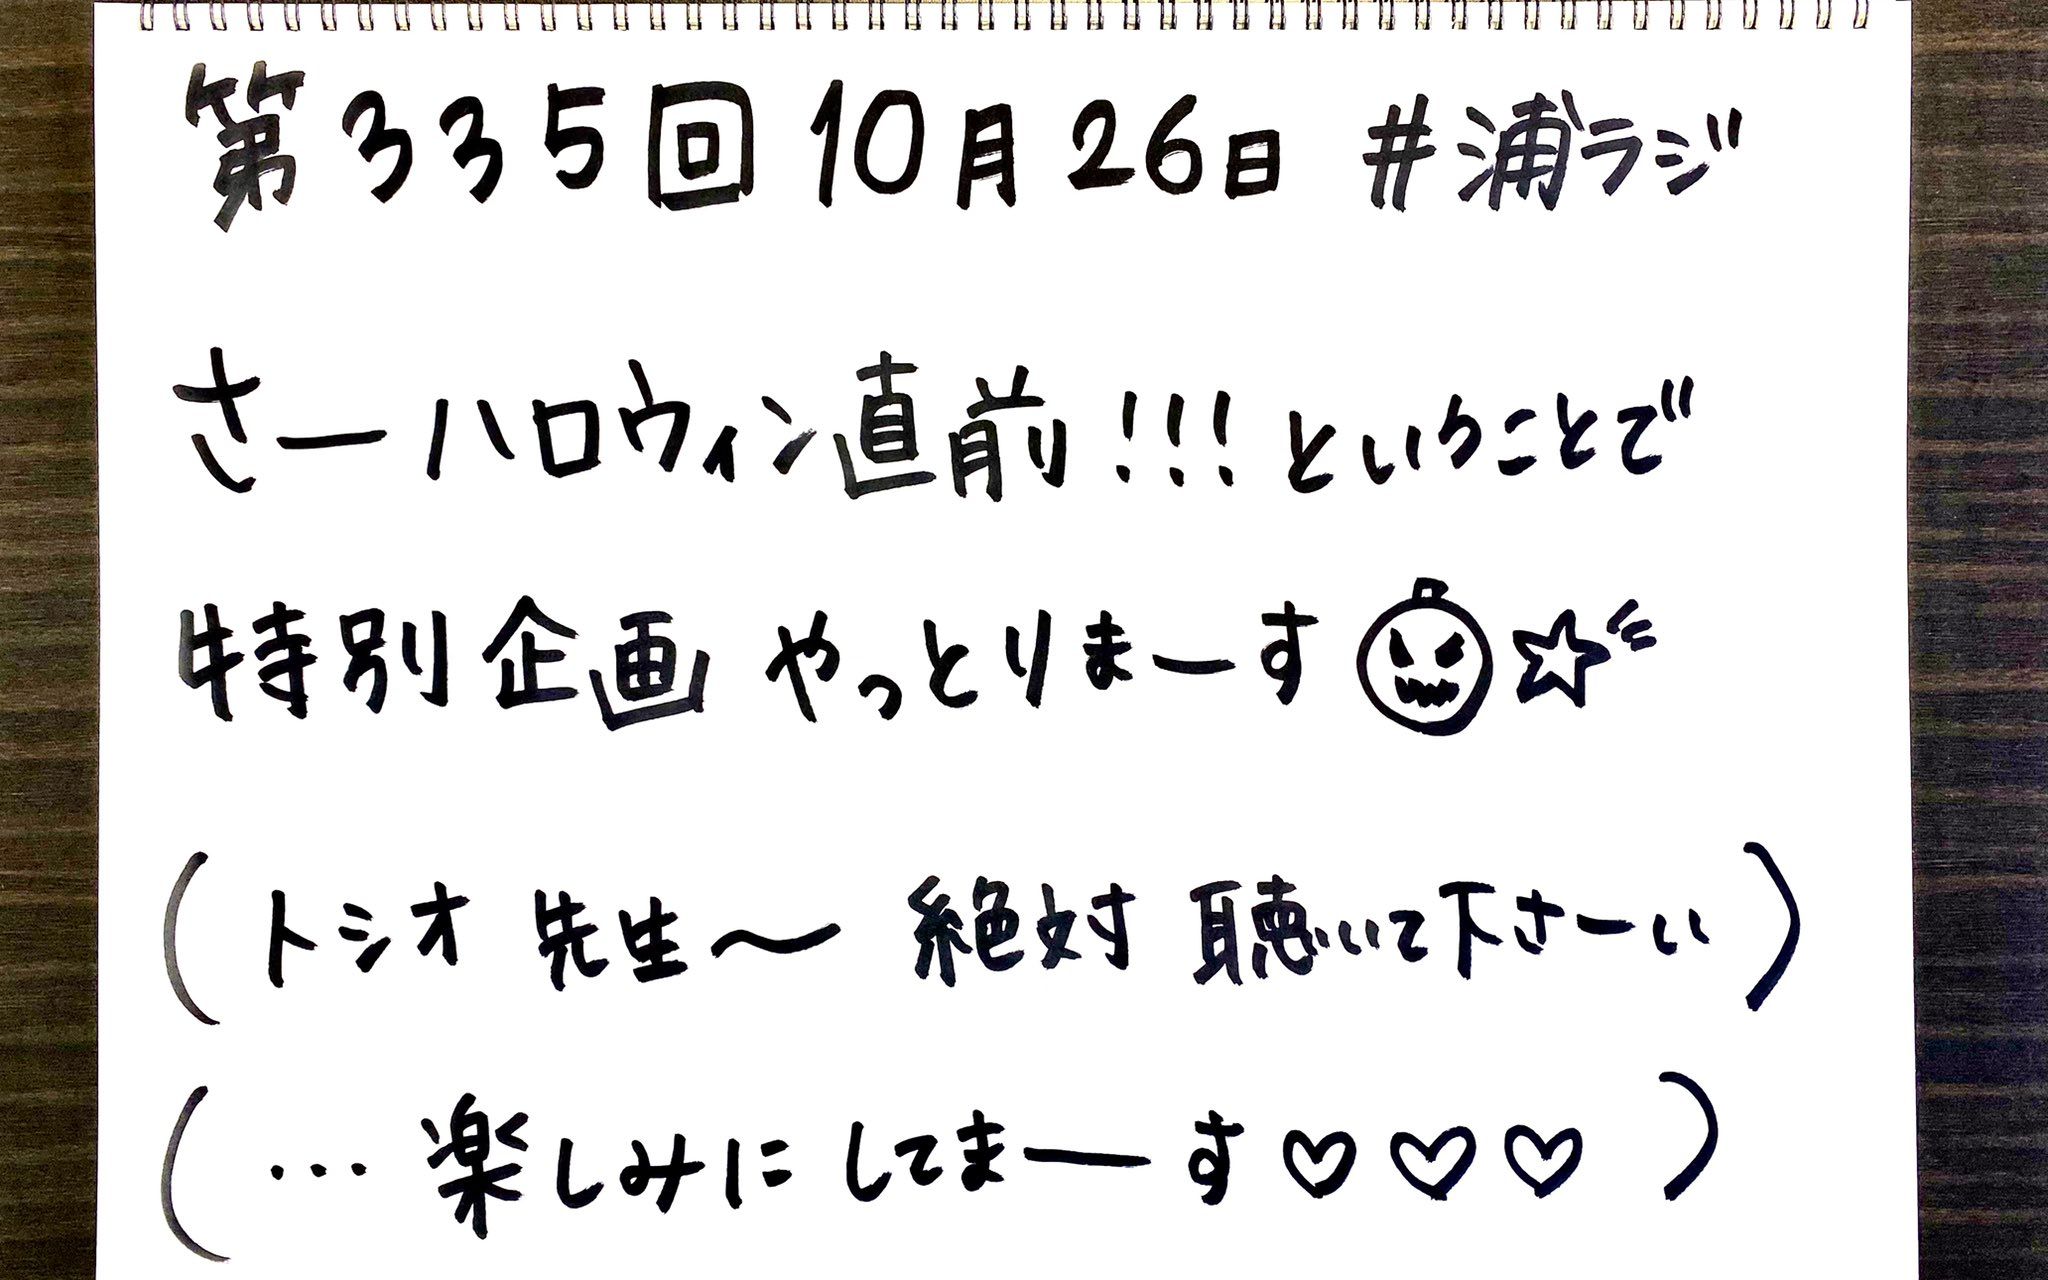 第335回 10月26日 #浦ラジ
さーハロウィン直前!!!ということで
特別企画 やっとりまーす🎃☆
(トシオ 先生〜 絶対 聴いて下さーい)
(… 楽しみに してまーす♡♡♡)